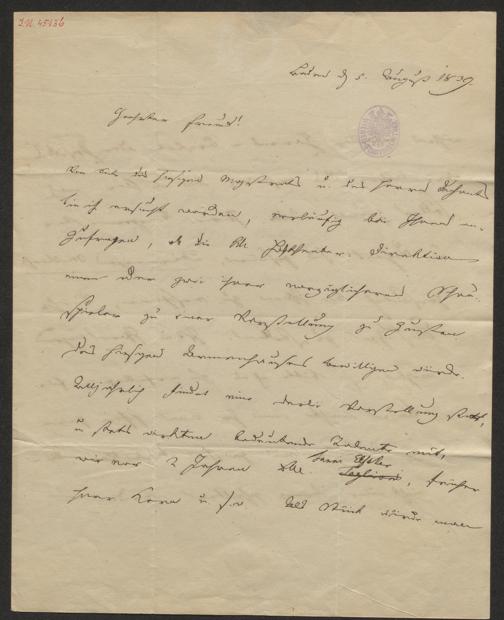 I.N. 45436
Baden d. 5. August 1839.
Geehrter Freund!
Von Seite des hiesigen Magistrats u. des Herrn Dechants
bin ich ersucht worden, vorläufig bei Ihnen an-
zufragen, ob die kk Hoftheater-Direktion
einen oder zwei ihrer vorzüglicheren Schau-
spieler zu einer Vorstellung zu Gunsten
des hiesigen Armenhauses bewilligen würde.
Alljährlich findet eine derlei Vorstellung statt,
u stets wirkten bedeutende Talente mit,
wie vor 2 Jahren Taglioni, früher
Herr Korn u s. w. Als Stück würde man